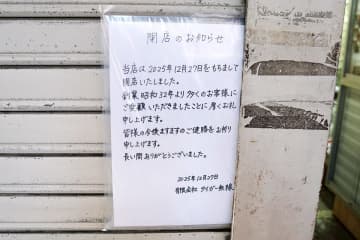 閉店のお知らせ
当店は2025年12月27日をもちまして
閉店いたしました。
創業昭和32年より多くのお客様に
ご愛顧いただきましたことに厚くお礼
申し上げます。
皆様の今後ますますのご健勝をお祈り
申し上げます。
長い間ありがとうございました。
2025年12月27日
有限会社 タイガー無線